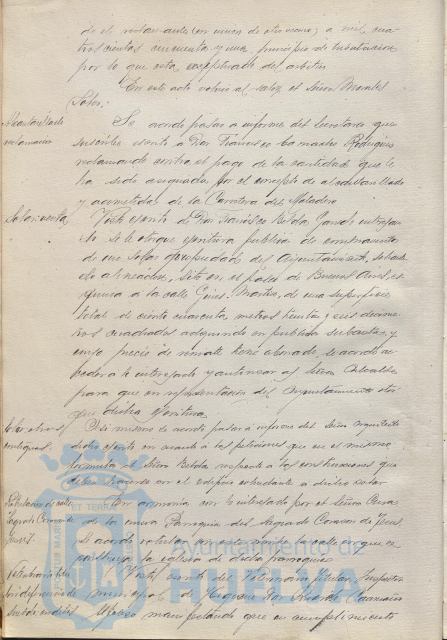 de el reclamante (en union de otro vecino) a mil cua
trocientas cincuenta y una, principio de tributacion
por lo que esta exceptuado del arbitrio
En este acto volvio al salon el Señor Morales
Solar:
Alcantarillado
reclamacion
Se acordo pasar a informe del Secretario que
suscribe escrito de Don Francisco Camacho Rodriguez
reclamando contra el pago de la cantidad que le
ha sido asignada por el concepto de alcantarillado
y acometidas de la Carretera del Matadero
Solar: venta
Visto escrito de Don Francisco Betola
se le otorgue escritura publica de compraventa
de un Solar propiedad del Ayuntamiento,
sito en el paseo de Buenos Aires, es
quina a la calle Gines Martin, de una superficie
total de ciento cuarenta metros treinta y seis decime
tros cuadrados adquirido en publica subasta, y
cuyo precio de remate tiene abonado, se acordo ac
ceder a lo interesado y autorizar al Señor Alcalde
para que en representacion del Ayuntamiento otor
gue dicha escritura
Asi mismo se acordo pasar a informe del Señor Arquitecto
contiguas.
dicho escrito en cuanto a las peticiones que en el mismo
formula el Señor Betola respecto a las construcciones que
en el edificio colindante a dicho solar
Rotulacion de calle
Sagrado Corazon de
Jesus
En armonia con lo interesado por el Señor Cura
de la nueva Parroquia del Sagrado Corazon de Jesus,
se acordo rotular con este nombre la calle en que se
construye la Iglesia de dicha parroquia
Visto escrito del Veterinario titular, Inspector
municipal de
manifestando que en cumplimiento
ET TERRAE
Ayuntamiento de
HUELVA